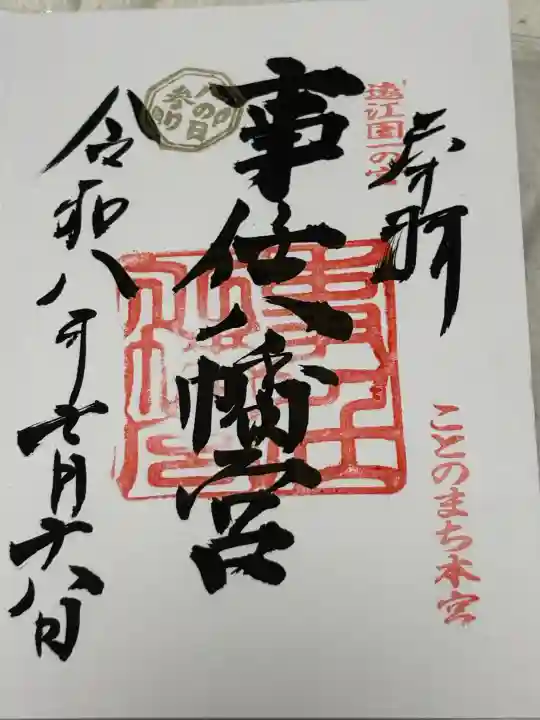 遠江国一の宮
奉拝
ことのまち本宮
事任八幡宮
八の日
参り
令和八年七月十八日